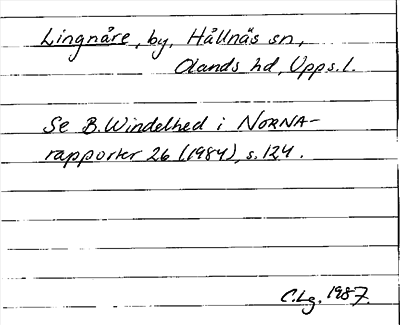 Lingnåre, by, Hållnäs sn,
Olands hd, Upps.l.
Se B. Windelhed i NORNA-
rapporter 26 (1984), s. 124.
C.Lg. 1987.